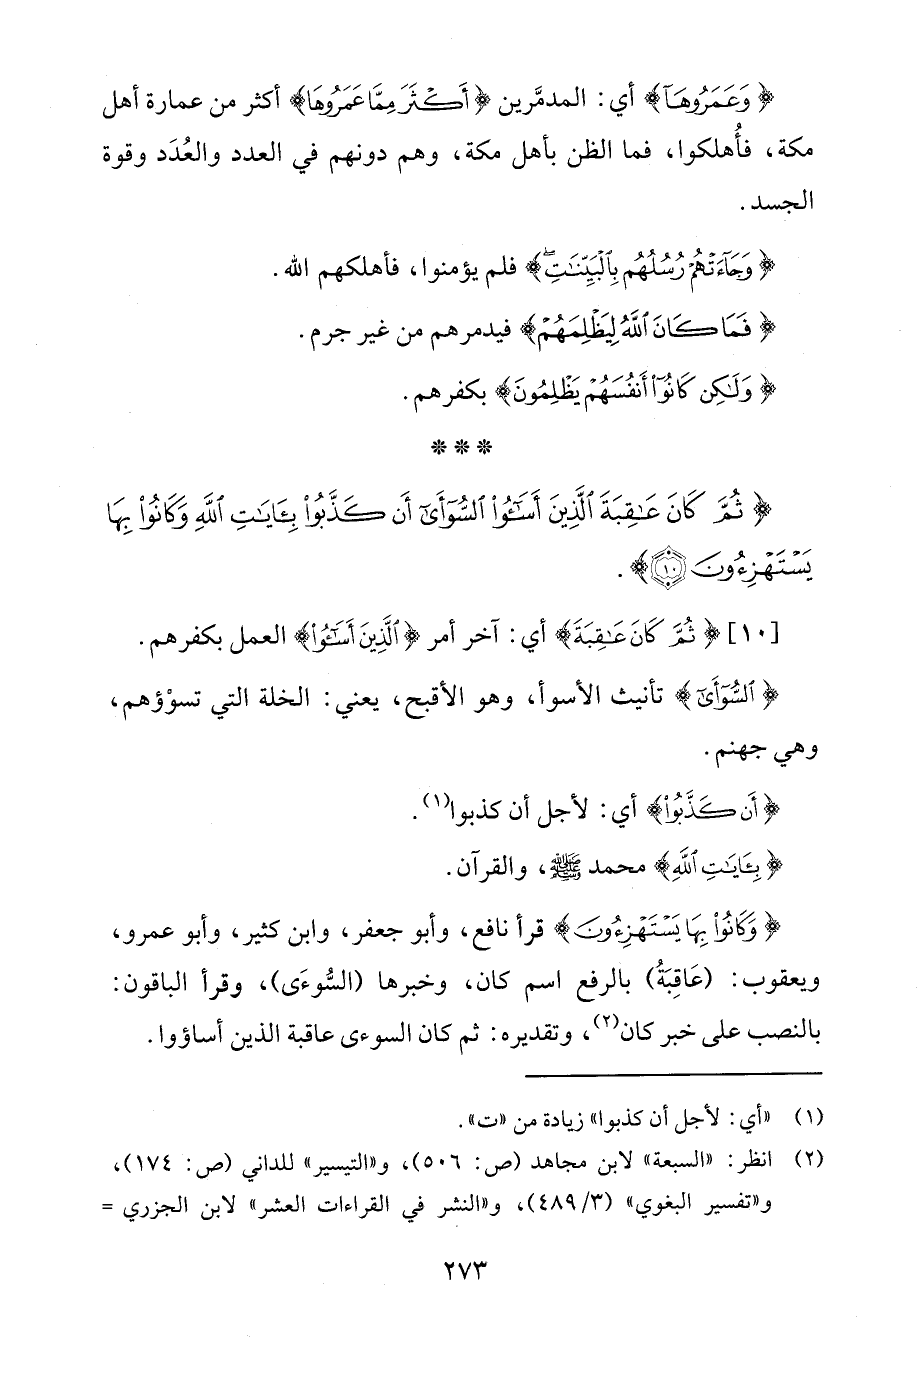 ﴿ وَعَمَرُوهَآ﴾ أي: المدمَّرين ﴿أَكْثَرَ مِمَّا عَمَرُوهَا﴾ أكثر من عمارة أهل
مكة، فأُهلكوا، فما الظن بأهل مكة، وهم دونهم في العدد والعُدَد وقوة
الجسد.
﴿ وَجَآءَتْهُمْ رُسُلُهُم بِالْبَيِّنَٰتِۖ﴾ فلم يؤمنوا، فأهلكهم الله.
﴿ فَمَا كَانَ ٱللَّهُ لِيَظْلِمَهُمْ﴾ فيدمرهم من غير جرم.
﴿ وَلَٰكِن كَانُوٓا۟ أَنفُسَهُمْ يَظْلِمُونَ﴾ بكفرهم.
* * *
﴿ ثُمَّ كَانَ عَٰقِبَةَ ٱلَّذِينَ أَسَٰٓـُٔوا۟ ٱلسُّوٓأَىٰٓ أَن كَذَّبُوا۟ بِـَٔايَٰتِ ٱللَّهِ وَكَانُوا۟ بِهَا
يَسْتَهْزِءُونَ ۝١٠﴾.
[١٠] ﴿ ثُمَّ كَانَ عَٰقِبَةَ﴾ أي: آخر أمر ﴿ٱلَّذِينَ أَسَٰٓـُٔوا۟﴾ العمل بكفرهم.
﴿ ٱلسُّوٓأَىٰٓ ﴾ تأنيث الأسوأ، وهو الأقبح، يعني: الخلة التي تسوْؤهم،
وهي جهنم.
﴿ أَن كَذَّبُوا۟﴾ أي: لأجل أن كذبوا(١).
﴿ بِـَٔايَٰتِ ٱللَّهِ﴾ محمد ﷺ، والقرآن.
﴿ وَكَانُوا۟ بِهَا يَسْتَهْزِءُونَ﴾ قرأ نافع، وأبو جعفر، وابن كثير، وأبو عمرو،
ويعقوب: (عَاقِبَةُ) بالرفع اسم كان، وخبرها (السُّوءَى)، وقرأ الباقون:
بالنصب على خبر كان(٢)، وتقديره: ثم كان السوءى عاقبة الذين أساؤوا.
(١) «أي: لأجل أن كذبوا» زيادة من «ت».
(٢) انظر: «السبعة» لابن مجاهد (ص: ٥٠٦)، و«التيسير» للداني (ص: ١٧٤)،
و«تفسير البغوي» (٣/ ٤٨٩)، و«النشر في القراءات العشر» لابن الجزري =
٢٧٣